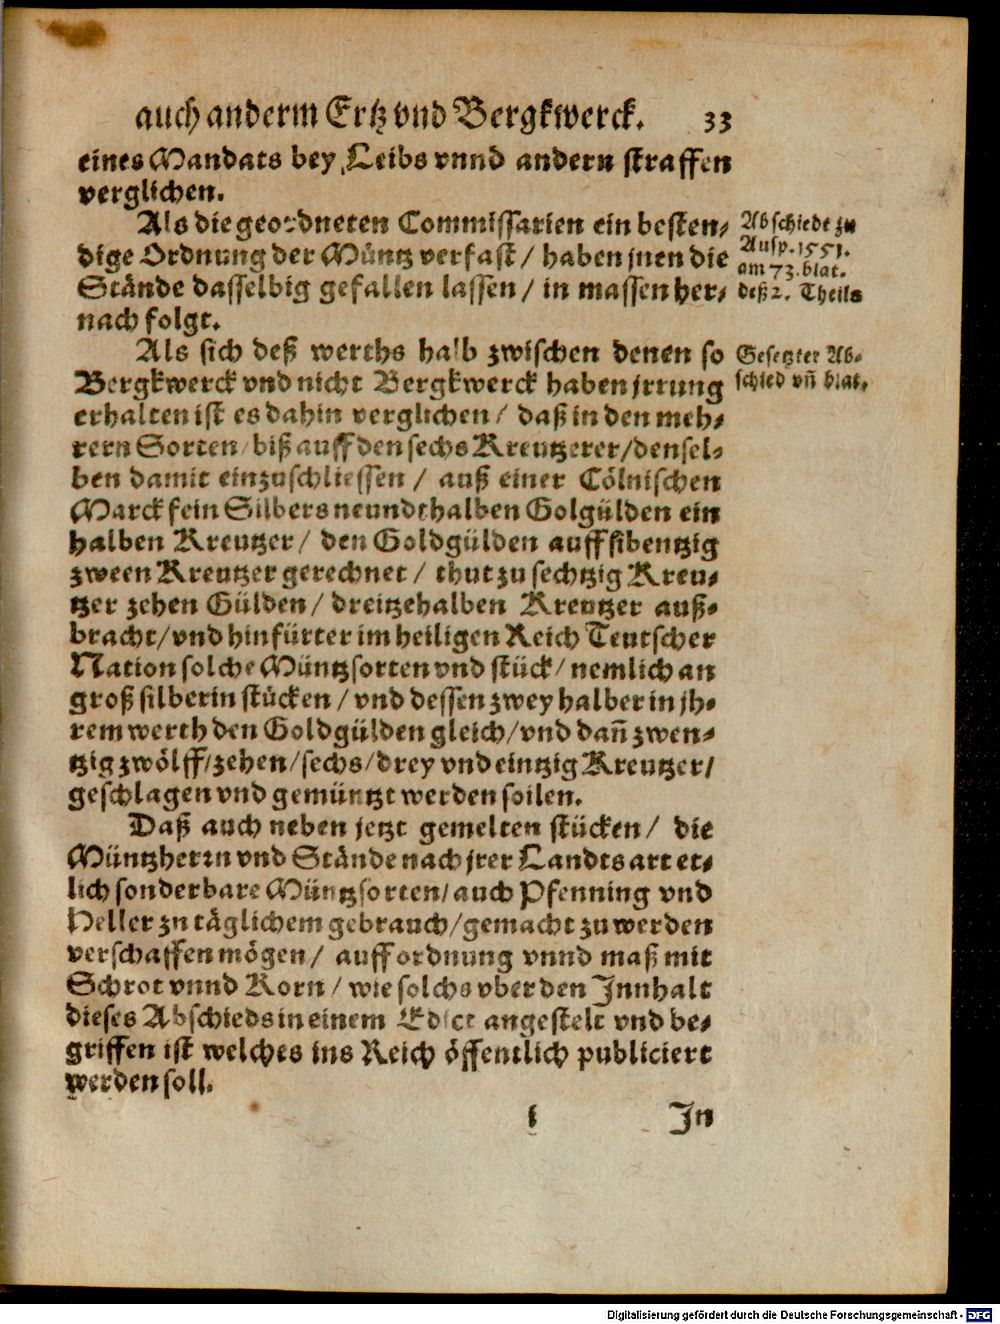 auch anderm Ertz vnd Bergkwerck. 33
eines Mandats bey Leibs vnnd andern straffen
verglichen.
Als die geordneten Commissarien ein besten⸗
dige Ordnung der Müntz verfast / haben jnen die
Stände dasselbig gefallen lassen / in massen her⸗
nach folgt.
Abschiedt zu
Ausp. 1551.
am 73. blat.
deß 2. Theils
Als sich deß werths halb zwischen denen so
Bergkwerck vnd nicht Bergkwerck haben jrrung
erhalten ist es dahin verglichen / daß in den meh⸗
rern Sorten / biß auff den sechs Kreutzerer / densel⸗
ben damit einzuschliessen / auß einer Cölnischen
Marck fein Silbers neundthalben Golgülden ein
halben Kreutzer / den Goldgülden auff sibentzig
zween Kreutzer gerechnet / thut zu sechtzig Kreu⸗
tzer zehen Gülden / dreitzehalben Kreutzer auß⸗
bracht / vnd hinfürter im heiligen Reich Teutscher
Nation solche Müntzsorten vnd stück / nemlich an
groß silberin stücken / vnd dessen zwey halber in jh⸗
rem werth den Goldgülden gleich / vnd dañ zwen⸗
tzig zwölff / zehen / sechs / drey vnd eintzig Kreutzer /
geschlagen vnd gemüntzt werden sollen.
Gesetzter Ab⸗
schied vñ blat.
Daß auch neben jetzt gemelten stücken / die
Müntzherrn vnd Stände nach jrer Landts art et⸗
lich sonderbare Müntzsorten / auch Pfenning vnd
Heller zu täglichem gebrauch / gemacht zu werden
verschaffen mögen / auff ordnung vnnd maß mit
Schrot vnnd Korn / wie solchs vber den Innhalt
dieses Abschieds in einem Edict angestelt vnd be⸗
griffen ist welches ins Reich öffentlich publiciert
werden soll.
In
Digitalisierung gefördert durch die Deutsche Forschungsgemeinschaft - DFG